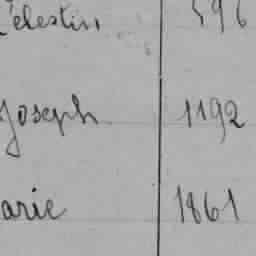 Célestin 596
Joseph 1192
arie 1861